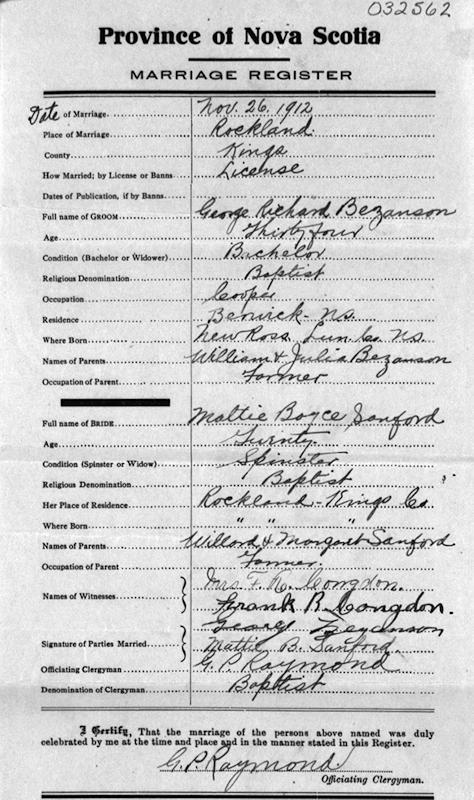 032562
Province of Nova Scotia
MARRIAGE REGISTER
Date of Marriage Nov. 26. 1912
Place of Marriage Rockland
County Kings
How Married; by License or Banns License
Dates of Publication, if by Banns
Full name of GROOM George Richard Bezanson
Age Thirty four
Condition (Bachelor or Widower) Bachelor
Religious Denomination Baptist
Occupation Cooper
Residence Berwick - N.S.
Where Born New Ross Lun. Co. N.S.
Names of Parents William & Julia Bezanson
Occupation of Parent Farmer
Full name of BRIDE Mattie Boyce Sanford
Age Twenty
Condition (Spinster or Widow) Spinster
Religious Denomination Baptist
Her Place of Residence Rockland - Kings Co
Where Born " " "
Names of Parents Willard & Margaret Sanford
Occupation of Parent Farmer
Names of Witnesses Mrs F. R. Congdon.
Frank R. Congdon.
Signature of Parties Married George Bezanson
Mattie B. Sanford
Officiating Clergyman G. P. Raymond
Denomination of Clergyman Baptist
I Certify, That the marriage of the persons above named was duly
celebrated by me at the time and place and in the manner stated in this Register.
G. P. Raymond
Officiating Clergyman.